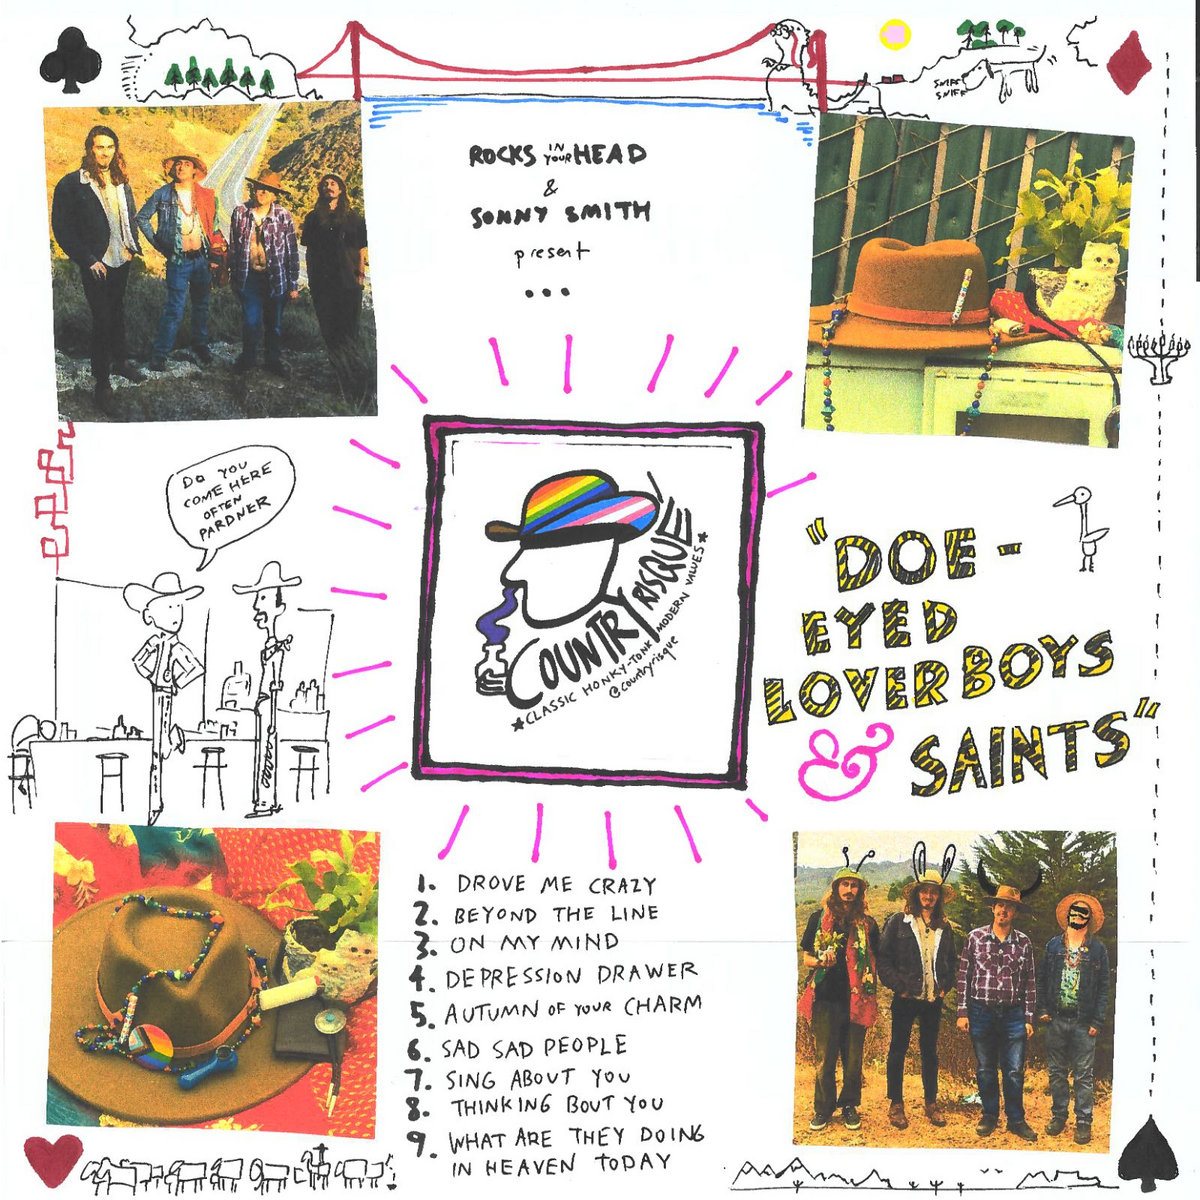 SNIFF
SNIFF
ROCKS IN YOUR HEAD
&
SONNY SMITH
present
...
DO YOU
COME HERE
OFTEN
PARDNER
COUNTRY RISQUÉ
★ CLASSIC HONKY-TONK MODERN VALUES ★
@countryrisque
"DOE-
EYED
LOVERBOYS
& SAINTS"
1. DROVE ME CRAZY
2. BEYOND THE LINE
3. ON MY MIND
4. DEPRESSION DRAWER
5. AUTUMN OF YOUR CHARM
6. SAD SAD PEOPLE
7. SING ABOUT YOU
8. THINKING BOUT YOU
9. WHAT ARE THEY DOING
IN HEAVEN TODAY